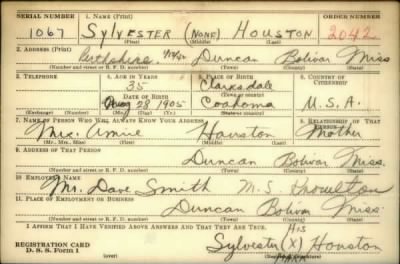 SERIAL NUMBER 1. NAME (Print) ORDER NUMBER
1067 SYLVESTER (NONE) HOUSTON 2042
(First) (Middle) (Last)
2. ADDRESS (Print)
Duncan Bolivar Miss
(Number and street or R. F. D. number) (Town) (County) (State)
3. TELEPHONE 4. AGE IN YEARS 5. PLACE OF BIRTH 6. COUNTRY OF CITIZENSHIP
35 Clarksdale
DATE OF BIRTH (Town or county)
Aug 28 1905 Coahoma U.S.A.
(Exchange) (Number) (Mo.) (Day) (Yr.) (State or country)
7. NAME OF PERSON WHO WILL ALWAYS KNOW YOUR ADDRESS 8. RELATIONSHIP OF THAT PERSON
Mrs. Amie Houston Mother
(Mr., Mrs., Miss) (First) (Middle) (Last)
9. ADDRESS OF THAT PERSON
Duncan Bolivar Miss.
(Number and street or R. F. D. number) (Town) (County) (State)
10. EMPLOYER'S NAME
Mr. Dave Smith M.S.
11. PLACE OF EMPLOYMENT OR BUSINESS
Duncan Bolivar Miss.
(Number and street or R. F. D. number) (Town) (County) (State)
I AFFIRM THAT I HAVE VERIFIED ABOVE ANSWERS AND THAT THEY ARE TRUE.
His
REGISTRATION CARD Sylvester (X) Houston
D. S. S. Form 1 (over) Mark